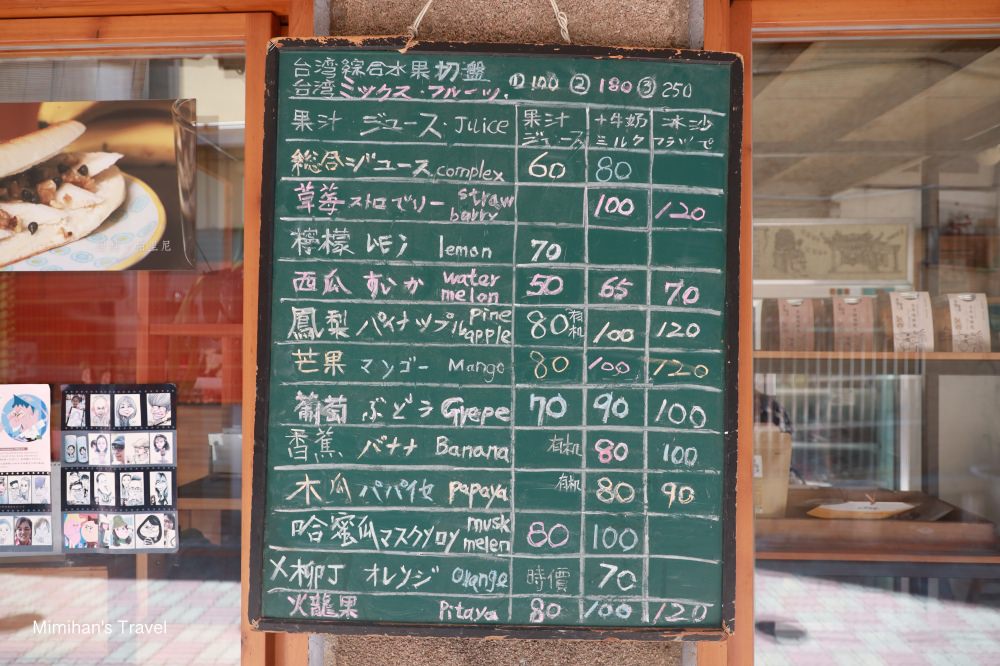 台湾綜合水果切盤
台湾ミックス・フルーツ. ① 100 ② 180 ③ 250
果汁 ジュース・Juice 果汁ジュース +牛奶ミルク 冰沙
総合ジュース complex 60 80
草莓 ストロベリー straw barry 100 120
檸檬 レモン lemon 70
西瓜 すいか water melon 50 65 70
鳳梨 パイナップル Pine apple 80 有机 100 120
芒果 マンゴー Mango 80 100 120
葡萄 ぶどう Grepe 70 90 100
香蕉 バナナ Banana 有机 80 100
木瓜 パパイヤ papaya 有机 80 90
哈蜜瓜 マスクメロン musk melen 80 100
X柳丁 オレンジ Orange 時價 70
火龍果 Pitaya 80 100 120
Mimihan's Travel